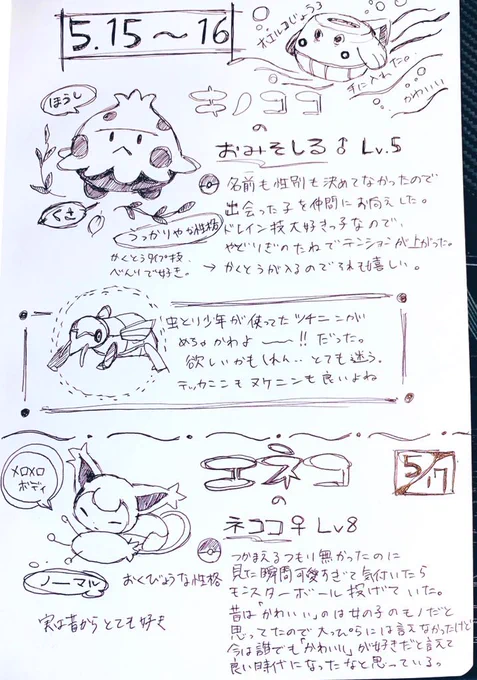 5.15～16
ホエルコじょうろ
手に入れた。
かわいい
ほうし
キノココ
の
おみそしる♂ Lv.5
くさ
うっかりやな性格
かくとうタイプ技、
べんりで好き。
名前も性別も決めてなかったので
出会った子を仲間にお迎えした。
ドレイン技大好きっ子なので、
やどりぎのたねでテンションが上がった。
→ かくとうが入るのでそれも嬉しい。
虫とり少年が使ってたツチニンが
めちゃかわよ〜〜!! だった。
欲しいかもしれん… とても迷う。
テッカニンもヌケニンも良いよね
5/17
メロメロ
ボディ
エネコ
の
ネココ♀ Lv8
ノーマル
おくびょうな性格
実は昔からとても好き
つかまえるつもり無かったのに
見た瞬間可愛すぎて気付いたら
モンスターボール投げていた。
昔は「かわいい」のは女の子のモノだと
思ってたので大っぴらには言えなかったけど
今は誰でも「かわいい」が好きだと言えて
良い時代になったなと思っている。